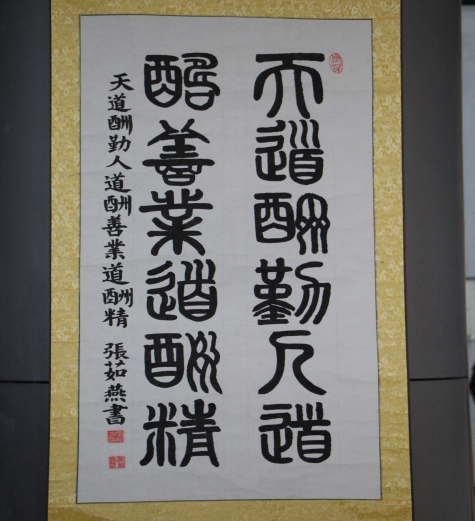 天道酬勤人道
酬善業道酬精
天道酬勤人道酬善業道酬精 張茹燕書